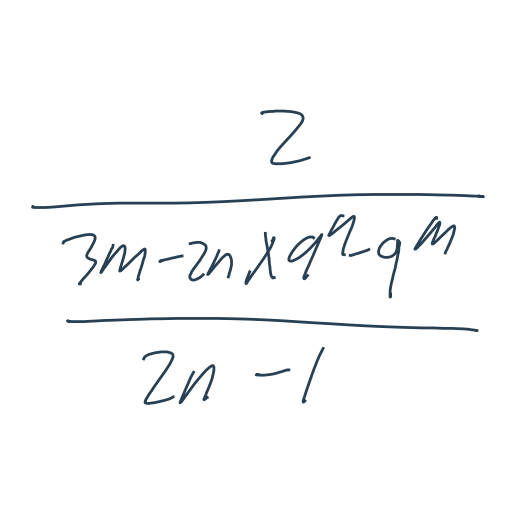 2
3m-2n x 9^n - 9^m
2n - 1